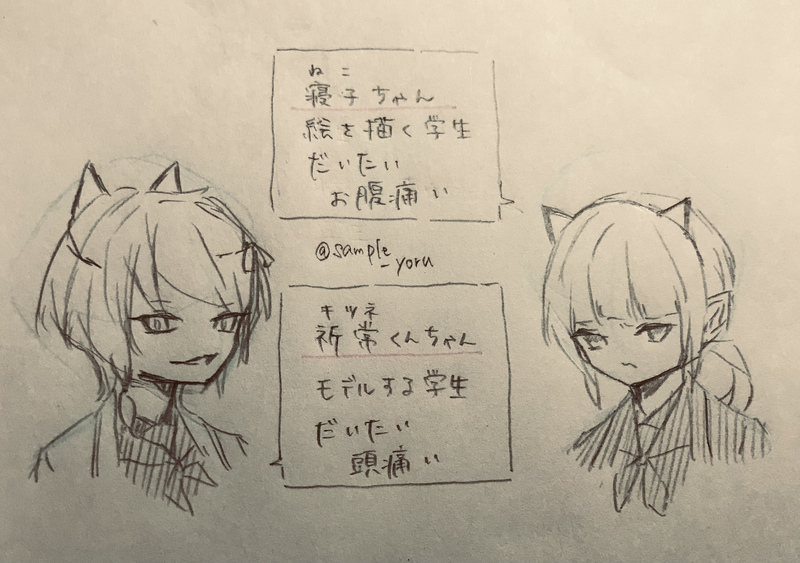 ねこ
寝子ちゃん
絵を描く学生
だいたい
お腹痛い
@sample_yoru
キツネ
祈常くんちゃん
モデルする学生
だいたい
頭痛い